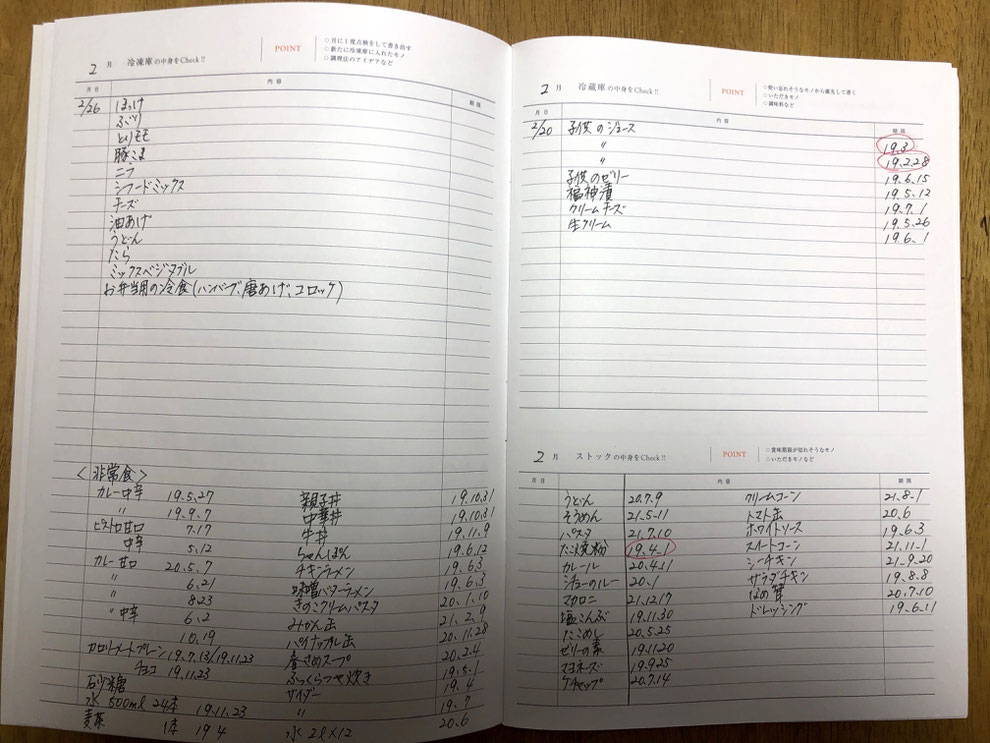 2 月 冷凍庫の中身をCheck!!
POINT
○月に1度点検をして書き出す
○新たに冷凍庫に入れたモノ
○調理法のアイデアなど
月日 内容 期限
2/26 ほっけ
ぶり
とりモモ
豚こま
ニラ
シーフードミックス
チーズ
油あげ
うどん
たら
ミックスベジタブル
お弁当用の冷食(ハンバーグ、唐あげ、コロッケ)
<非常食>
カレー中辛 19.5.27 親子丼 19.10.31
〃 19.9.7 中華丼 19.10.31
ビストロ甘口 7.17 牛丼 19.11.9
中辛 5.12 ちゃんぽん 19.6.12
カレー甘口 20.5.7 チキンラーメン 19.6.3
〃 6.21 味噌バターラーメン 19.6.3
〃 8.23 きのこクリームパスタ 20.1.10
〃中辛 6.2 みかん缶 21.2.9
10.19 パイナップル缶 20.11.28
カロリーメイトプレーン 19.7.13/19.11.23 春さめスープ 20.2.4
チョコ 19.11.23 ふっくらつや炊き 19.5.1
砂糖 サイダー 19.4
水 500ml 24本 19.11.23 〃 19.7
麦茶 1本 19.4 水 2l×12 20.6
2 月 冷蔵庫の中身をCheck!!
POINT
○使い忘れそうなモノから優先して書く
○いただきモノ
○調味料など
月日 内容 期限
2/20 子供のジュース
〃 19.3
〃 19.2.28
子供のゼリー 19.6.15
福神漬 19.5.12
クリームチーズ 19.7.1
生クリーム 19.5.26
19.6.1
2 月 ストックの中身をCheck!!
POINT
○賞味期限が切れそうなモノ
○いただきモノなど
月日 内容 期限
うどん 20.7.9 クリームコーン 21.8.1
そうめん 21.5.11 トマト缶 20.6
パスタ 21.7.10 ホワイトソース 19.6.3
たこ焼粉 19.4.1 スイートコーン 21.11.1
カレールー 20.4.11 シーチキン 21.9.20
シチューのルー 20.1 サラダチキン 19.8.8
マカロニ 21.12.17 なめ茸 20.7.10
塩こんぶ 19.11.30 ドレッシング 19.6.11
たこめし 20.5.25
ゼリーの素 19.11.20
マヨネーズ 19.9.25
ケチャップ 20.7.14